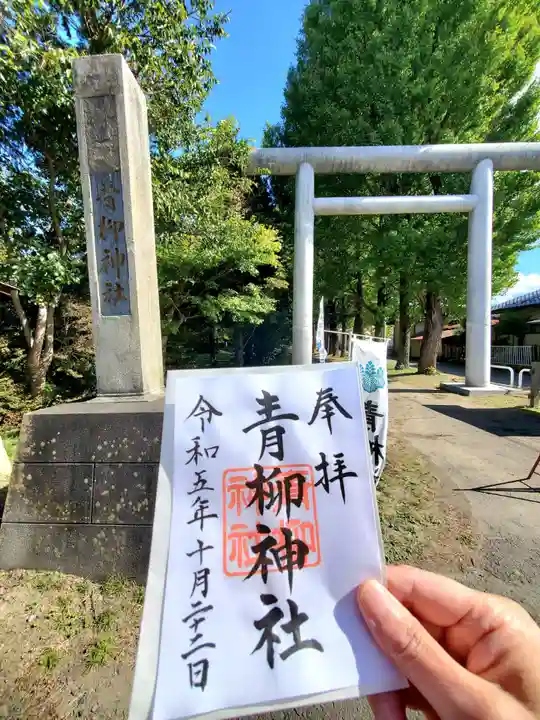 青柳神社
奉拝
青柳神社
青柳神社
令和五年十月二十二日